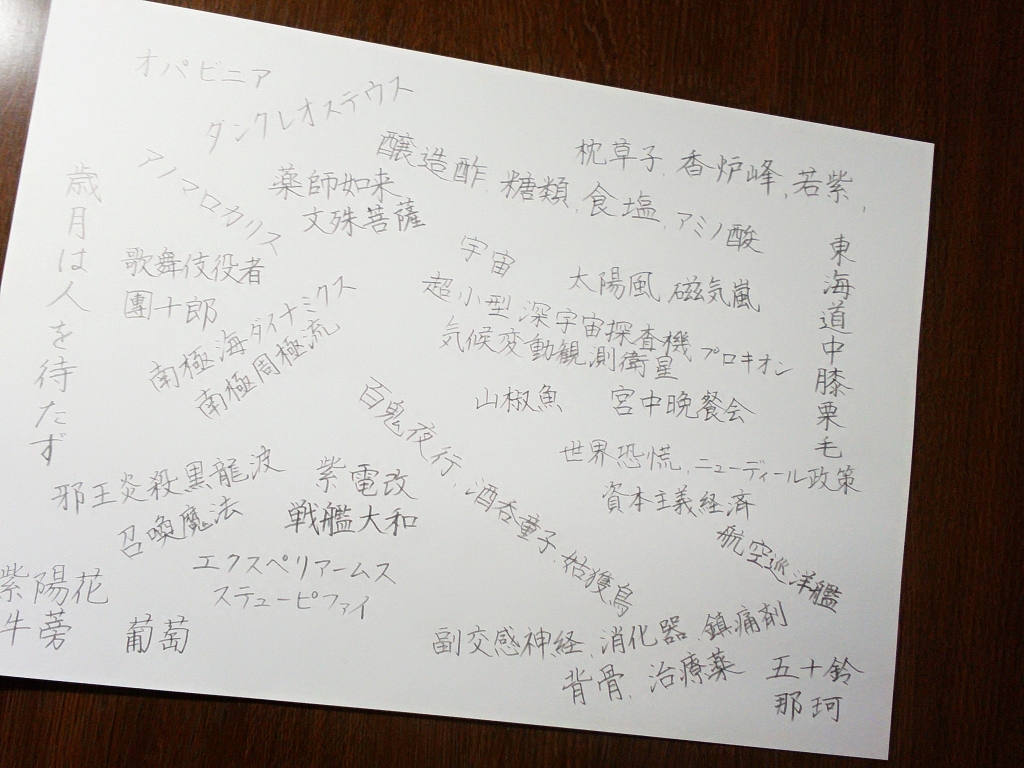 オパビニア
ダンクレオステウス
アノマロカリス
歳月は人を待たず
薬師如来
文殊菩薩
醸造酢、糖類、食塩、アミノ酸
枕草子、香炉峰、若紫、
東海道中膝栗毛
歌舞伎役者
團十郎
宇宙
太陽風 磁気嵐
超小型深宇宙探査機 プロキオン
気候変動観測衛星
南極海ダイナミクス
南極周極流
山椒魚 宮中晩餐会
百鬼夜行、酒呑童子、姑獲鳥
世界恐慌、ニューディール政策
資本主義経済
航空巡洋艦
邪王炎殺黒龍波
召喚魔法
紫電改
戦艦大和
エクスペリアームス
ステューピファイ
紫陽花
牛蒡 葡萄
副交感神経、消化器、鎮痛剤
背骨、治療薬
五十鈴
那珂